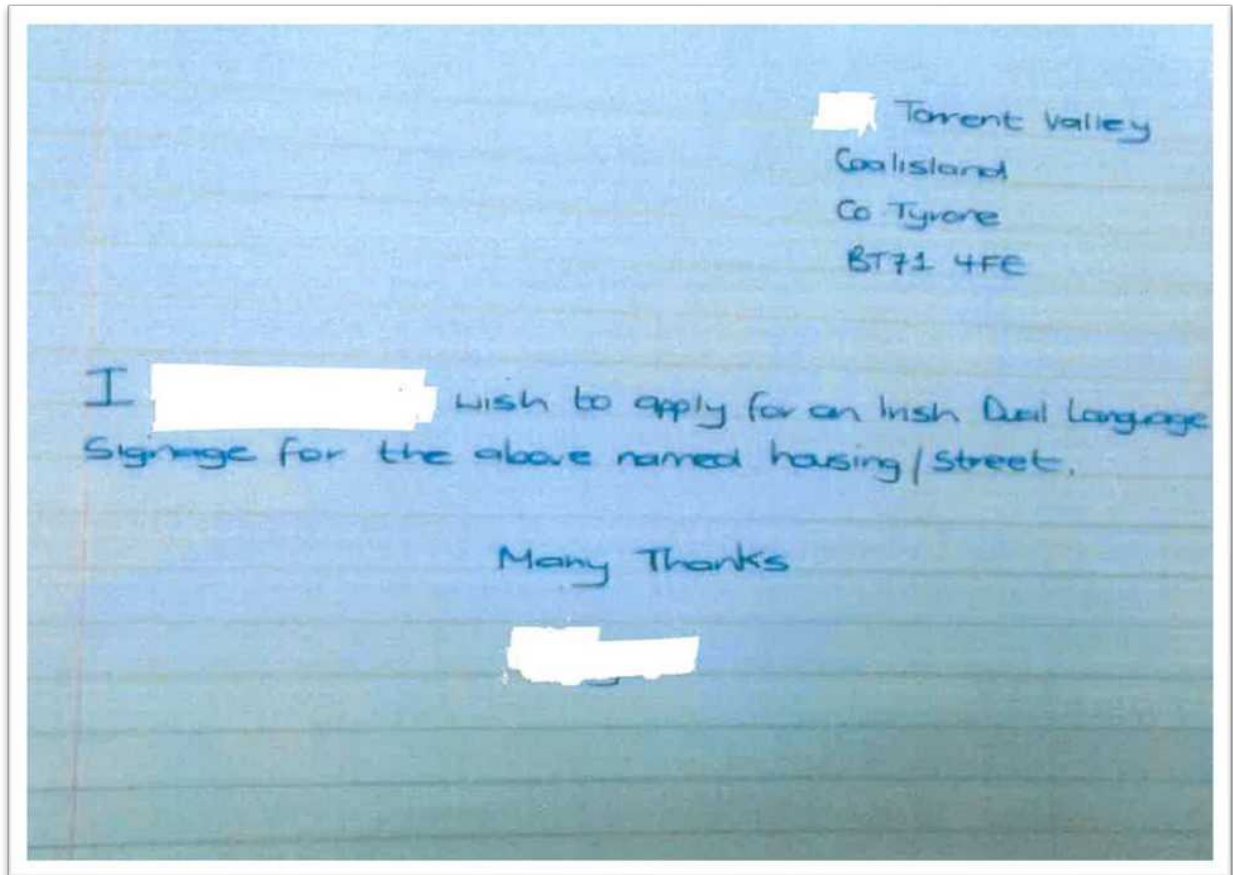 Torrent Valley
Coalisland
Co Tyrone
BT71 4FE
I wish to apply for an Irish Dual Language
Signage for the above named housing/Street.
Many Thanks